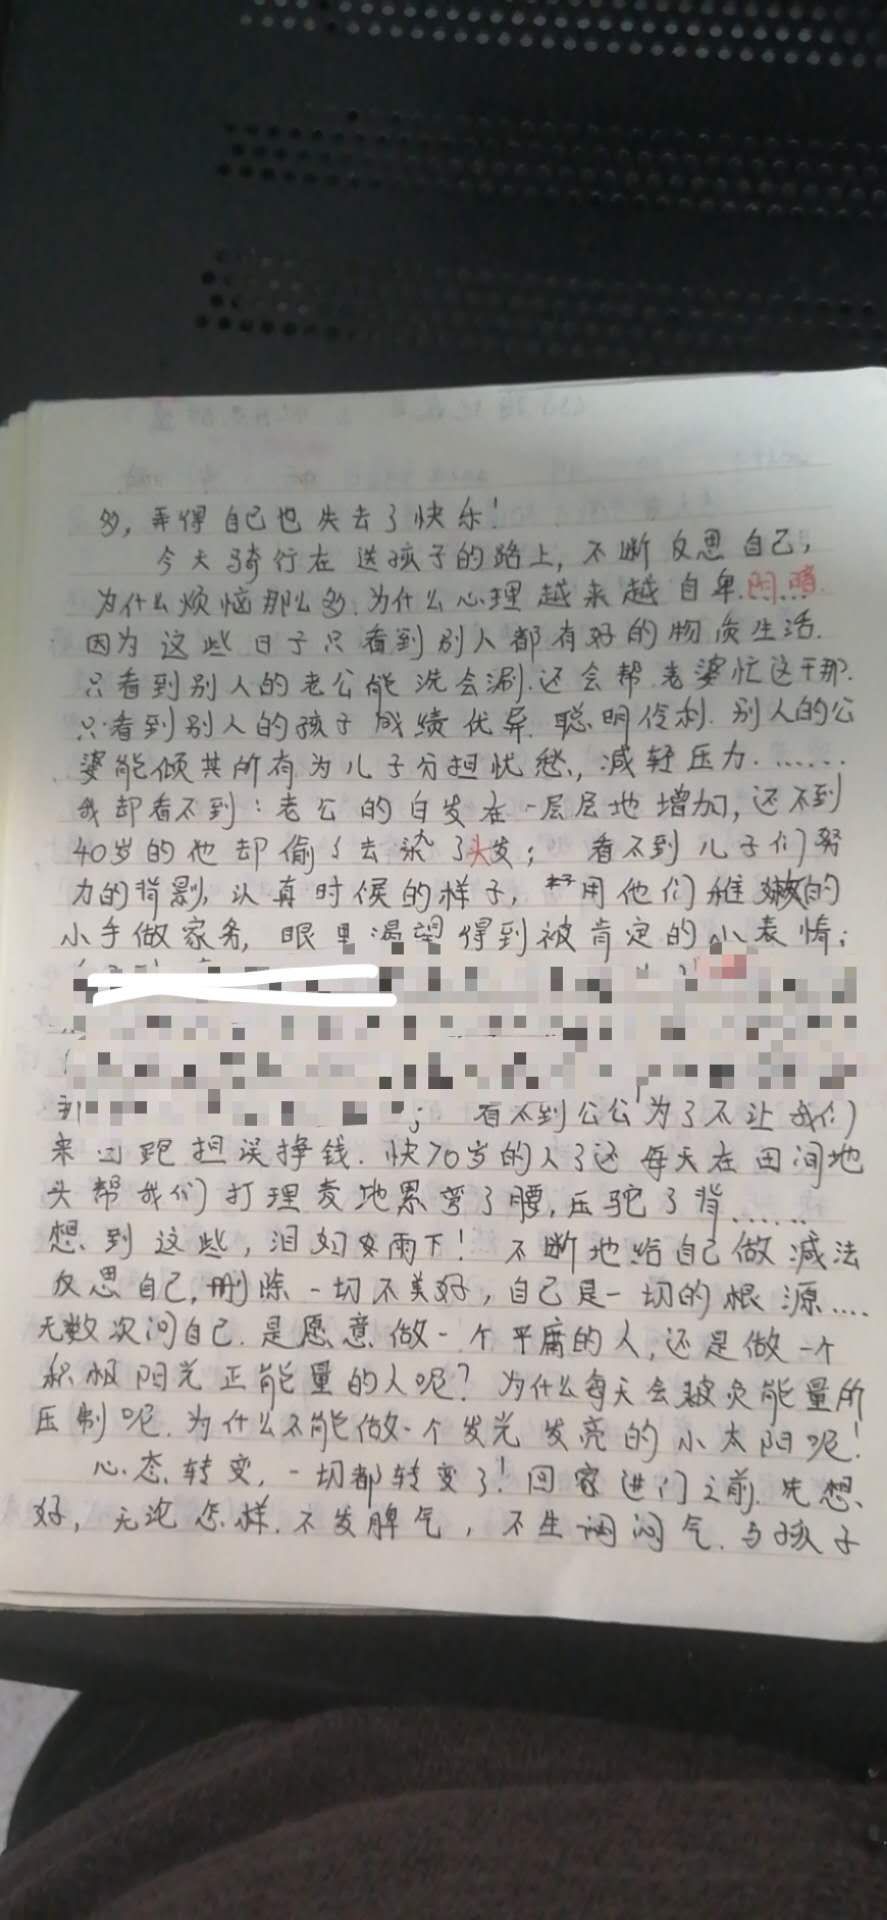 多，弄得自己也失去了快乐！
今天骑行在送孩子的路上，不断反思自己，
为什么烦恼那么多.为什么心理越来越自卑.阴暗.
因为这些日子只看到别人都有好的物质生活.
只看到别人的老公能洗会涮.还会帮老婆忙这干那.
只看到别人的孩子成绩优异.聪明伶利.别人的公
婆能倾其所有为儿子分担忧愁.，减轻压力.……
我却看不到：老公的白发在一层层地增加，还不到
40岁的他却偷了去染了头发； 看不到儿子们努
力的背影，认真时候的样子，用他们稚嫩的
小手做家务，眼里渴望得到被肯定的小表情；
到 ； 看不到公公为了不让我们
来回跑担误挣钱.快70岁的人了还每天在田间地
头帮我们打理麦地累弯了腰，压驼了背……
想到这些，泪如雨下！不断地给自己做减法
反思自己，删除一切不美好，自己是一切的根源….
无数次问自己.是愿意做一个平庸的人，还是做一个
积极阳光正能量的人呢？为什么每天会被负能量所
压制呢.为什么不能做一个发光发亮的小太阳呢！
心态转变，一切都转变了！回家进门之前.先想
好，无论怎样.不发脾气，不生闷气.与孩子